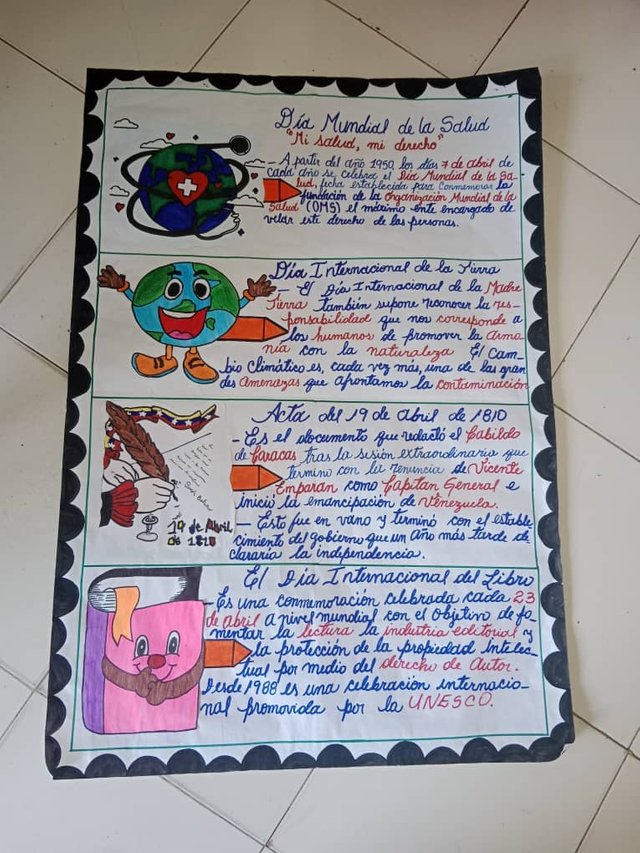 Día Mundial de la Salud
"Mi salud, mi derecho"
- A partir del año 1950, los días 7 de abril de
cada año se celebra el Día Mundial de la Sa-
lud, fecha establecida para conmemorar la
fundación de la Organización Mundial de la
Salud (OMS) el máximo ente encargado de
velar este derecho de las personas.
Día Internacional de la Tierra
- El Día Internacional de la Madre
Tierra también supone reconocer la res-
ponsabilidad que nos corresponde a
los humanos de promover la armo
nía con la naturaleza El Cam-
bio Climático es, cada vez más, una de las gran
des Amenazas que afrontamos la contaminación
Acta del 19 de abril de 1810
- Es el documento que redactó el Cabildo
de Caracas tras la sesión extraordinaria que
termino con la renuncia de Vicente
Emparan como Capitan General e
inicio la emancipación de Venezuela.
- Esto fue en vano y terminó con el estable-
cimiento del gobierno que un Año más tarde de-
clararía la independencia.
19 de Abril
de 1810
El Día Internacional del Libro
- Es una conmemoración celebrada cada 23
de Abril a nivel mundial con el objetivo de fo-
mentar la lectura la industria editorial y
la protección de la propiedad intelec-
tual por medio del derecho de Autor.
Desde 1988 es una celebración internacio-
nal promovida por la UNESCO.